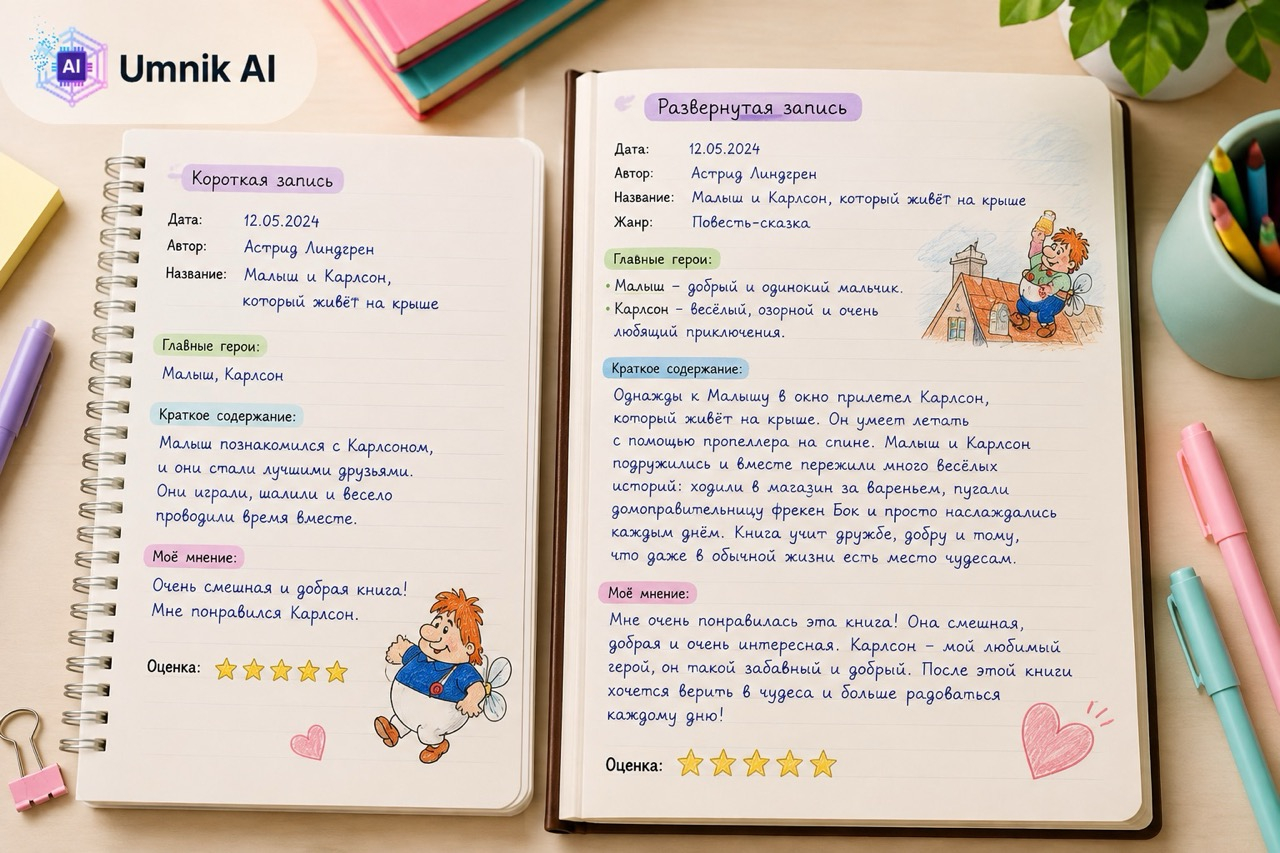 AI
Umnik AI
Короткая запись
Дата: 12.05.2024
Автор: Астрид Линдгрен
Название: Малыш и Карлсон,
который живёт на крыше
Главные герои:
Малыш, Карлсон
Краткое содержание:
Малыш познакомился с Карлсоном,
и они стали лучшими друзьями.
Они играли, шалили и весело
проводили время вместе.
Моё мнение:
Очень смешная и добрая книга!
Мне понравился Карлсон.
Оценка:
Развернутая запись
Дата: 12.05.2024
Автор: Астрид Линдгрен
Название: Малыш и Карлсон, который живёт на крыше
Жанр: Повесть-сказка
Главные герои:
• Малыш – добрый и одинокий мальчик.
• Карлсон – весёлый, озорной и очень
любящий приключения.
Краткое содержание:
Однажды к Малышу в окно прилетел Карлсон,
который живёт на крыше. Он умеет летать
с помощью пропеллера на спине. Малыш и Карлсон
подружились и вместе пережили много весёлых
историй: ходили в магазин за вареньем, пугали
домоправительницу фрекен Бок и просто наслаждались
каждым днём. Книга учит дружбе, добру и тому,
что даже в обычной жизни есть место чудесам.
Моё мнение:
Мне очень понравилась эта книга! Она смешная,
добрая и очень интересная. Карлсон – мой любимый
герой, он такой забавный и добрый. После этой книги
хочется верить в чудеса и больше радоваться
каждому дню!
Оценка: